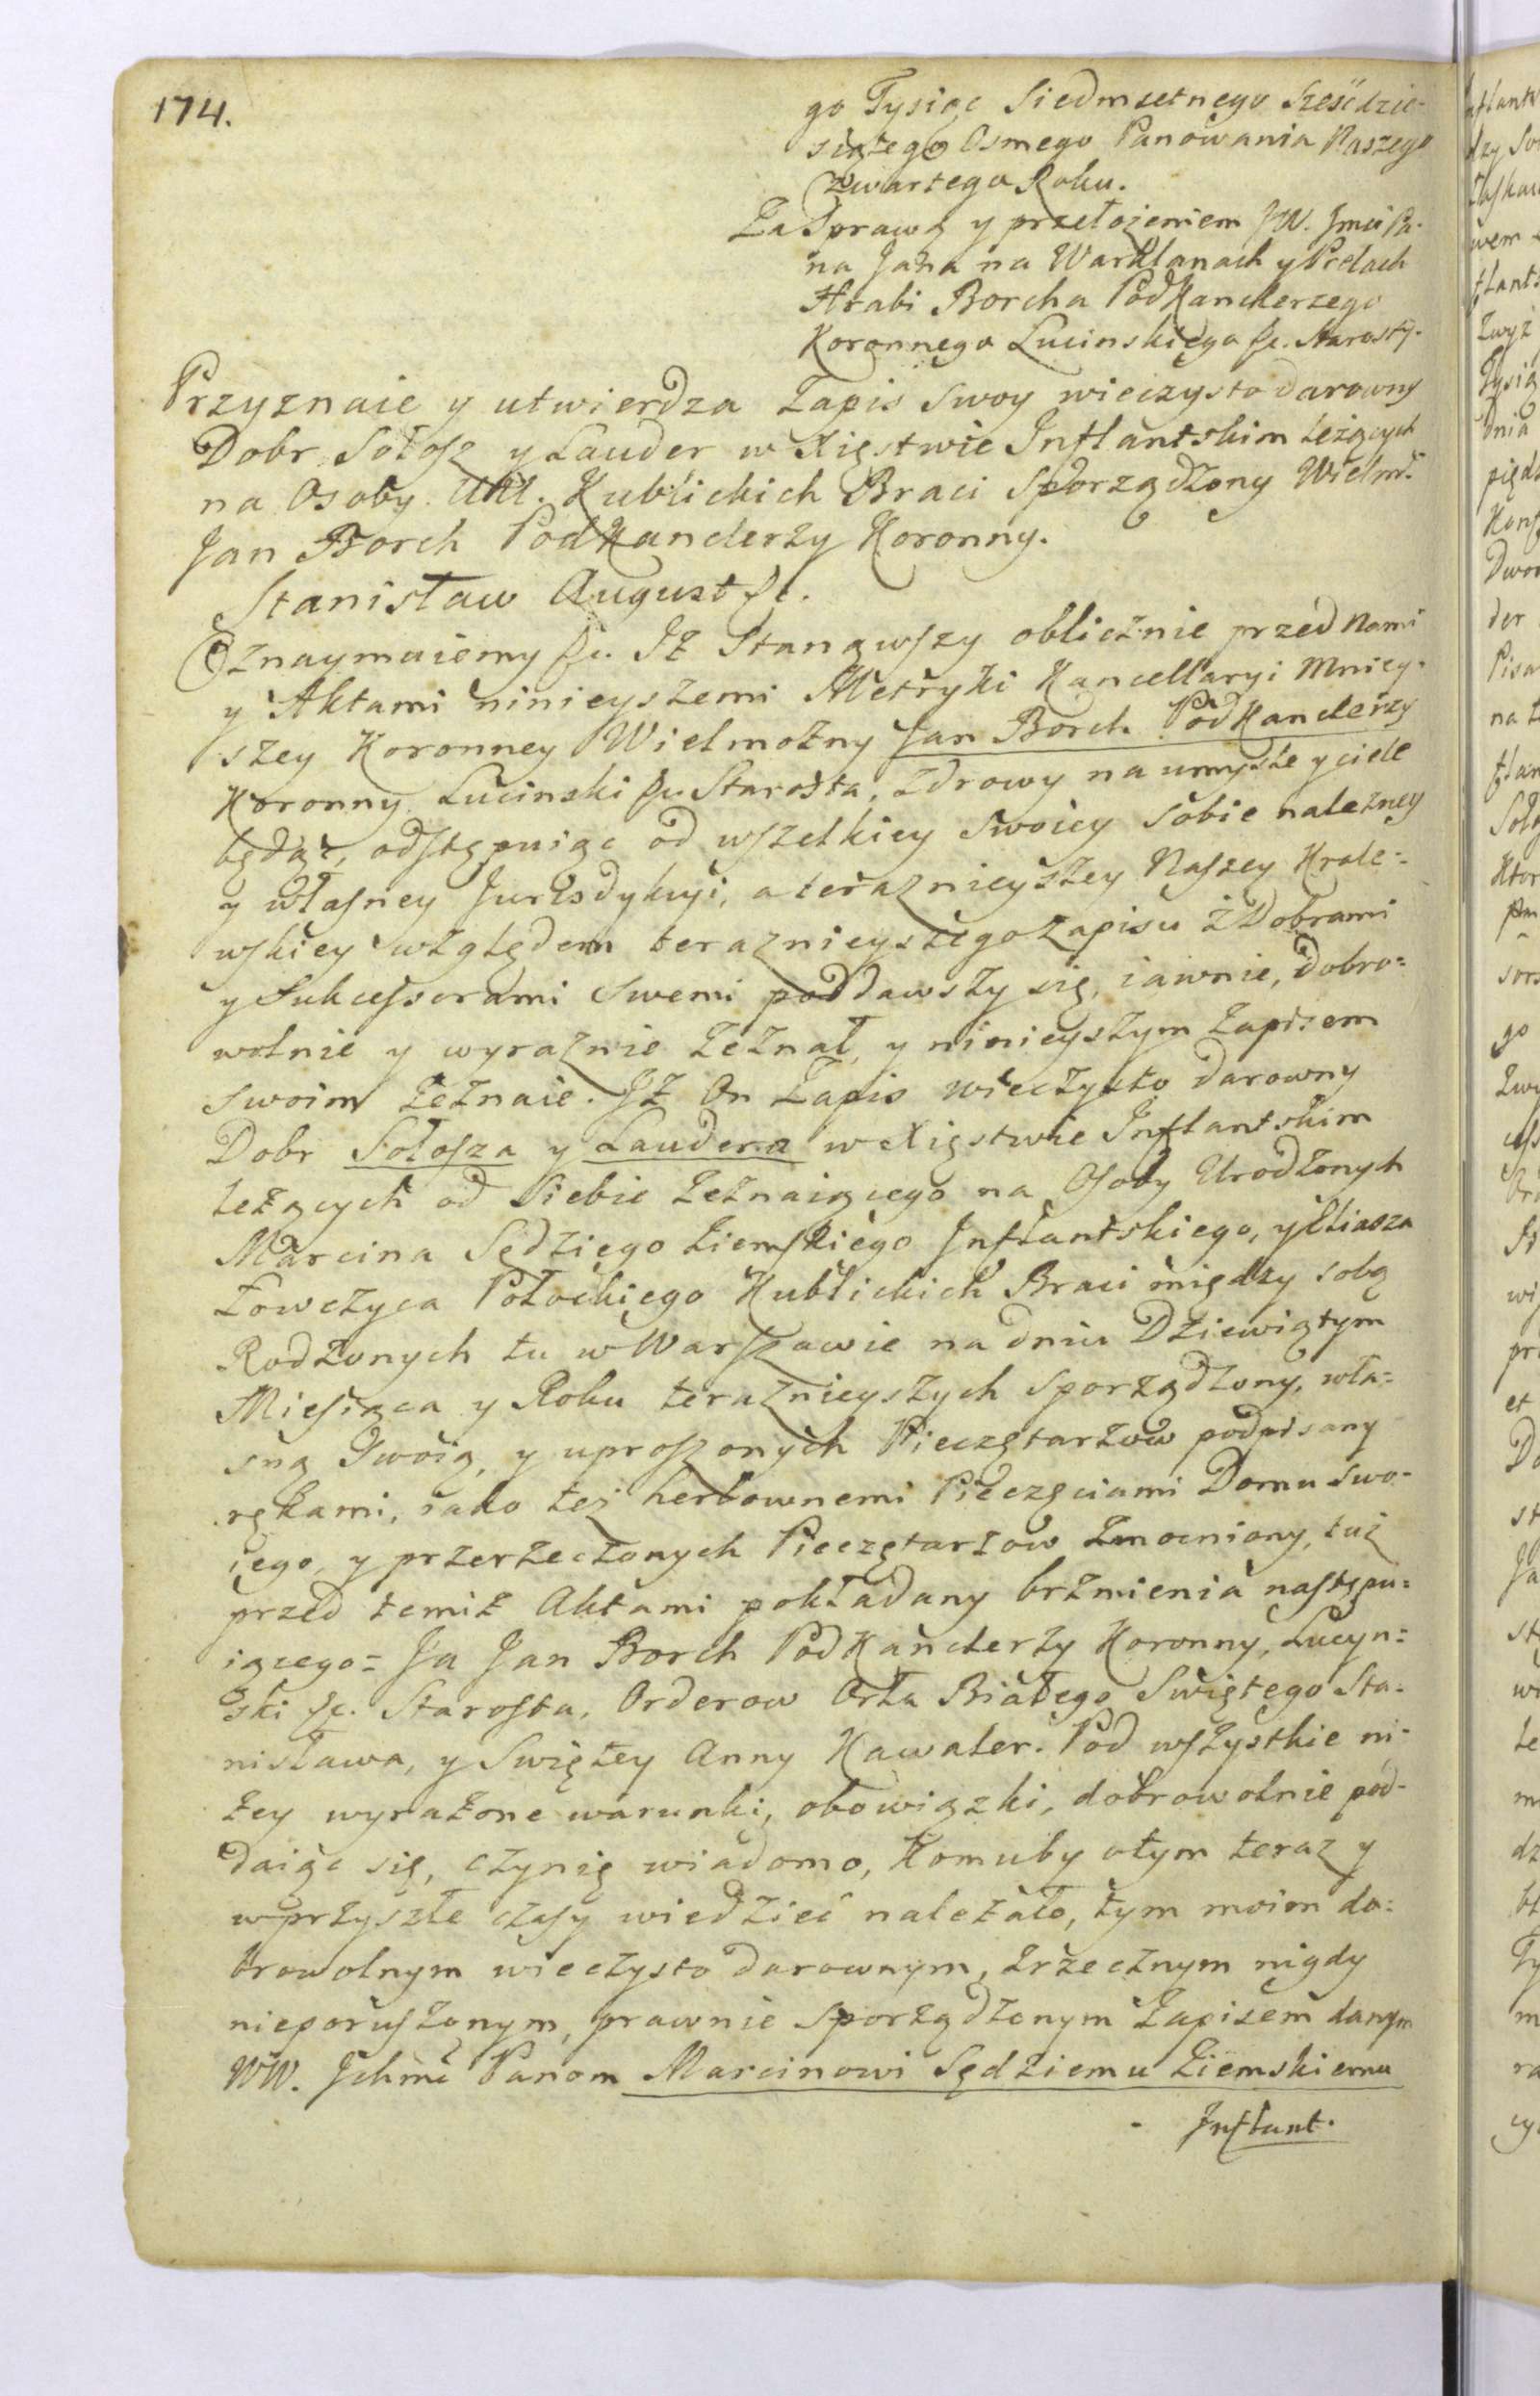 174.
go Tysiąc Siedmsetnego Sześćdzie-
siątego Osmego Panowania Naszego
Czwartego Roku.
Za Sprawą y przełożeniem JW. Jmci Pa-
na Jana na Warklanach y Prelach
Hrabi Borcha Podkanclerzego
Koronnego Lucinskiego &c. Starosty.
Przyznaie y utwierdza Zapis Swoy wieczysto darowny
Dobr Sołosz y Lauder w Xięstwie Inflantskim leżących
na Osoby UUr. Kublickich Braci Sporządzony Wielm.
Jan Borch Podkanclerzy Koronny.
Stanisław August &c.
Oznaymuiemy &c. Iż Stanąwszy oblicznie przed Nami
y Aktami ninieyszemi Metryki Kancellaryi Mniey-
szey Koronney Wielmożny Jan Borch Podkanclerzy
Koronny Lucinski &c. Starosta, zdrowy na umyśle y ciele
będąc, odstępuiąc od wszelkiey Swoiey sobie należney
y własney Jurisdykcyi, a teraznieyszey Naszey Krole-
wskiey względem teraznieyszego zapisu z Dobrami
y Sukcessorami Swemi poddawszy się, iawnie, dobro-
wolnie y wyraznie Zeznał, y ninieyszym Zapisem
swoim Zeznaie. Iż On Zapis wieczysto darowny
Dobr Sołosza y Laudera w Xięstwie Inflantskim
leżących od Siebie Zeznaiącego na Osoby Urodzonych
Marcina Sędziego Ziemskiego Inflantskiego, y Eliasza
Łowczyca Połockiego Kublickich Braci między sobą
Rodzonych tu w Warszawie na dniu Dziewiątym
Miesiąca y Roku teraznieyszych Sporządzony, wła-
sną Swoią, y uproszonych Pieczętarzow podpisany
rękami, iako też herbownemi Pieczęciami Domu swo-
iego, y przerzeczonych Pieczętarzow Zmocniony, tuż
przed temiż Aktami pokładany brzmienia nastepu-
iącego= Ja Jan Borch Podkanclerzy Koronny, Lucyn-
ski &c. Starosta, Orderow Orła Białego Swiętego Sta-
nisława, y Swiętey Anny Kawaler. Pod wszystkie ni-
żey wyrażone warunki, obowiązki, dobrowolnie pod-
daiąc się, czynię wiadomo, Komuby otym teraz y
wprzyszłe czasy wiedzieć należało, tym moim do-
browolnym wieczysto darownym, zrzecznym nigdy
nieporuszonym, prawnie Sporządzonym Zapisem danym
WW. Ichmć Panom Marcinowi Sędziemu Ziemskiemu
Inflant.